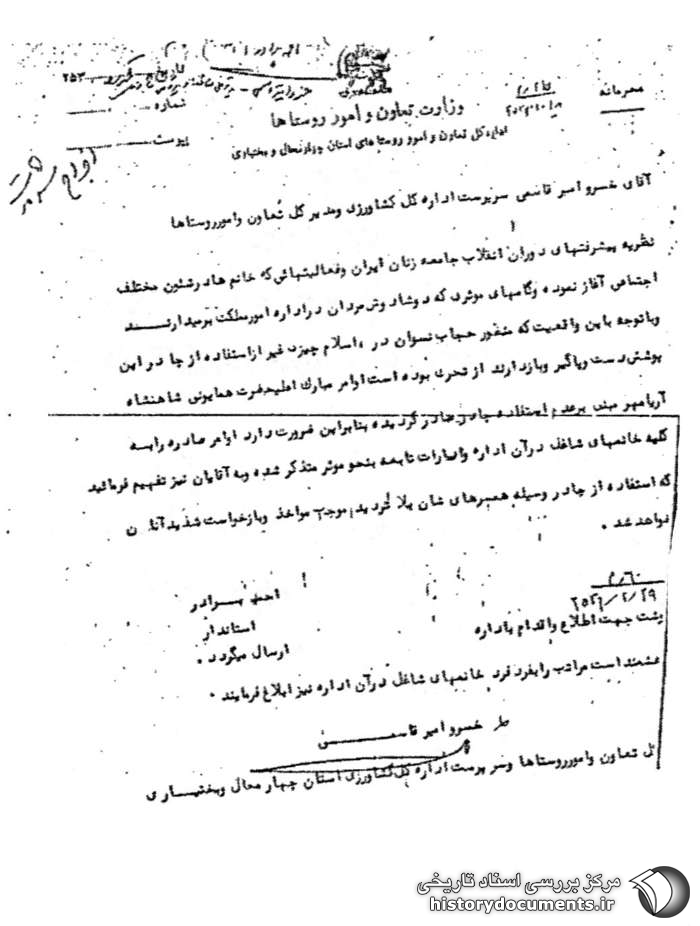 محرمانه
شماره
پیوست
وزارت تعاون و امور روستاها
اداره کل تعاون و امور روستاهای استان چهارمحال و بختیاری
آقای خسرو امیر قاسمی سرپرست اداره کل کشاورزی و مدیر کل تعاون و امور روستاها
نظر به پیشرفتهای دوران انقلاب جامعه زنان ایران و فعالیتهائی که خانم ها در شئون مختلف
اجتماعی آغاز نموده و گامهای موثری که دوشادوش مردان در اداره امور مملکت برمیدارند
و با توجه باین واقعیت که منظور حجاب نسوان در اسلام چیزی غیر از استفاده از چادر این
پوشش دست و پاگیر و بازدارنده از تحرک بوده است اوامر مبارک اعلیحضرت همایونی شاهنشاه
آریامهر مبنی بر عدم استفاده چادر صادر گردیده بنابراین ضرورت دارد اوامر صادره را به
کلیه خانمهای شاغل در آن اداره و ادارات تابعه بنحو موثر متذکر شده و به آقایان نیز تفهیم فرمائید
که استفاده از چادر وسیله همسرهای شان موجب مواخذه و بازخواست شدید آنان
خواهد شد .
استاندار
۲۵۳۶/۲/۲۹
پشت جهت اطلاع و اقدام باداره
ارسال میگردد .
خواهشمند است مراتب را بفرد فرد خانمهای شاغل در آن اداره نیز ابلاغ فرمایند .
خسرو امیر قاسمی
کل تعاون و امور روستاها و سرپرست اداره کل کشاورزی استان چهار محال و بختیاری
مرکز بررسی اسناد تاریخی
historydocuments.ir